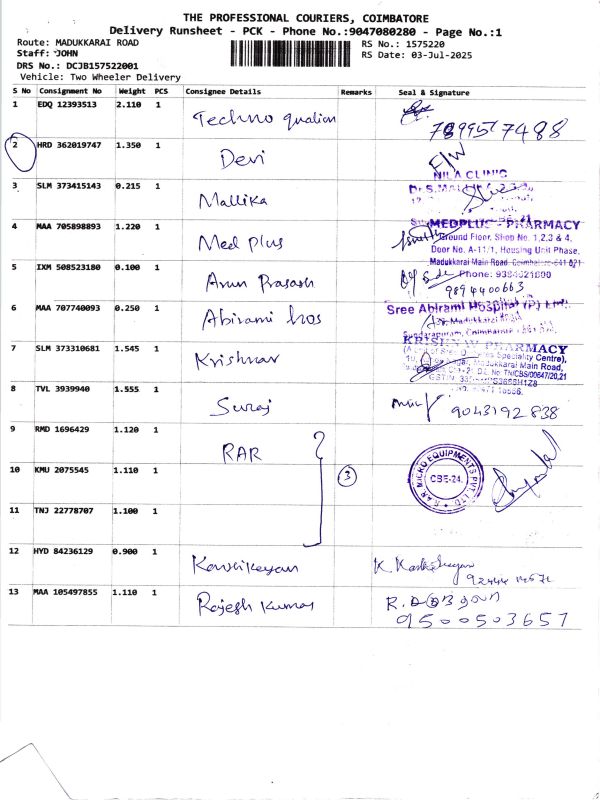 THE PROFESSIONAL COURIERS, COIMBATORE
Delivery Runsheet - PCK - Phone No.:9047080280 - Page No.:1
Route: MADUKKARAI ROAD
RS No.: 1575220
Staff: JOHN
RS Date: 03-Jul-2025
DRS No.: DCJB157522001
Vehicle: Two Wheeler Delivery
S No Consignment No Weight PCS Consignee Details Remarks Seal & Signature
1 EDQ 12393513 2.110 1 Techno
2 HRD 362019747 1.350 1 Devi F/W
NILA CLINIC
3 SLM 373415143 0.215 1 Mallika
4 MAA 705898893 1.220 1 Med plus
MEDPLUS - PHARMACY
Ground Floor, Shop No. 1,2,3 & 4,
Door No. A-11/1, Housing Unit Phase,
Madukkarai Main Road, Coimbatore-641 021
5 IXM 508523180 0.100 1 Arun Prasash
Phone:
9894400663
6 MAA 707740093 0.250 1 Abirami hos
Sree Abirami Hospital (P) Ltd.
Sundarapuram, Coimbatore
7 SLM 373310681 1.545 1 Krishnav
KRISHNAV PHARMACY
Speciality Centre),
Madukkarai Main Road,
8 TVL 3939940 1.555 1 Suraj 9043192838
9 RMD 1696429 1.120 1 RAR
10 KMU 2075545 1.110 1 3
RAR MICRO EQUIPMENTS PVT. LTD
CBE-24.
11 TNJ 22778707 1.100 1
12 HYD 84236129 0.900 1
13 MAA 105497855 1.110 1 Rajesh Kumar
9500503657